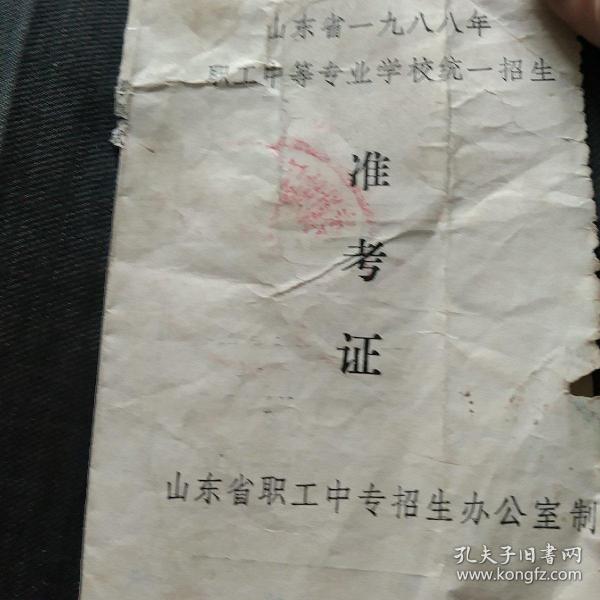 山东省一九八八年
职工中等专业学校统一招生
准
考
证
山东省职工中专招生办公室制
孔夫子旧书网
www.kongfz.com